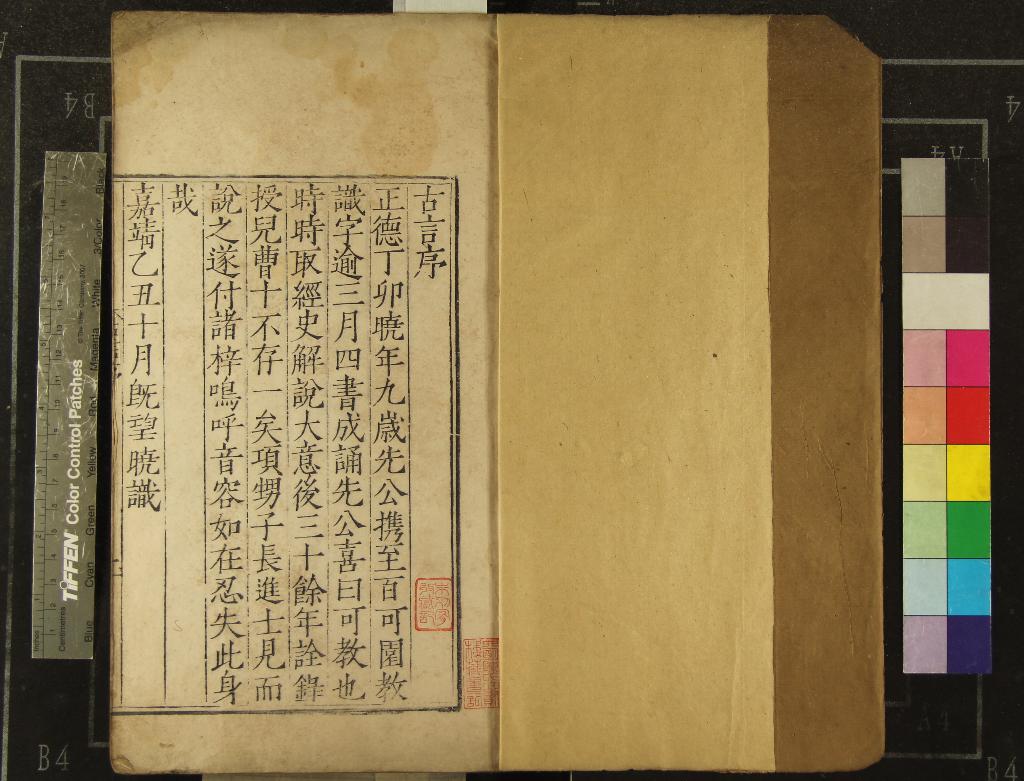 古言序
正德丁卯曉年九歲先公攜至百可園教
識字逾三月四書成誦先公喜曰可教也
時時取經史解說大意後三十餘年詮錄
授兒曹十不存一矣項甥子長進士見而
說之遂付諸梓嗚呼音容如在忍失此身
哉
嘉靖乙丑十月旣望曉識
TIFFEN Color Control Patches
Centimetres
Inches
Blue
Cyan
Green
Yellow
Red
Magenta
White
3/Color
Black
B4
B4
A4
A4
B4